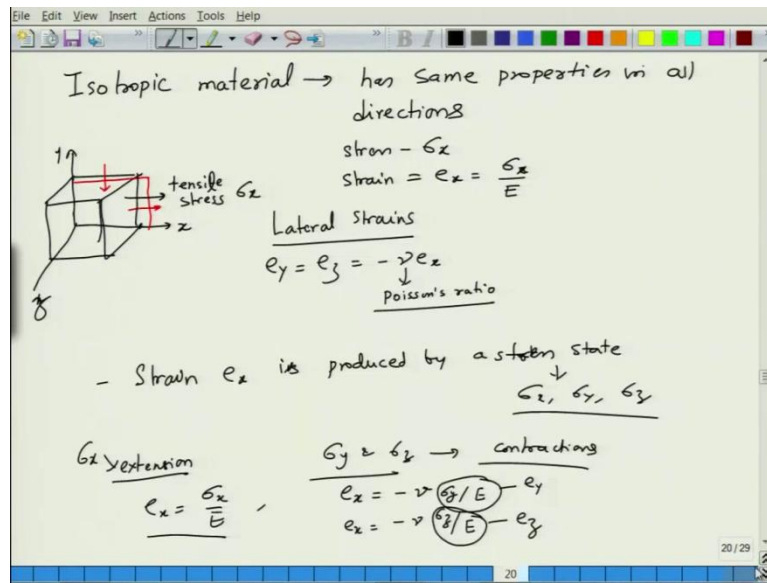 File Edit View Insert Actions Tools Help
Isotropic material → has same properties in all
directions
stress - σx
strain = ex = σx/E
y
tensile
stress σx
x
z
Lateral Strains
ey = ez = - νex
Poisson's ratio
- Strain ex is produced by a stress state
σx, σy, σz
σx → extension
σy & σz → contractions
ex = σx/E ,
ex = - ν σy/E - ey
ex = - ν σz/E - ez
20/29
20